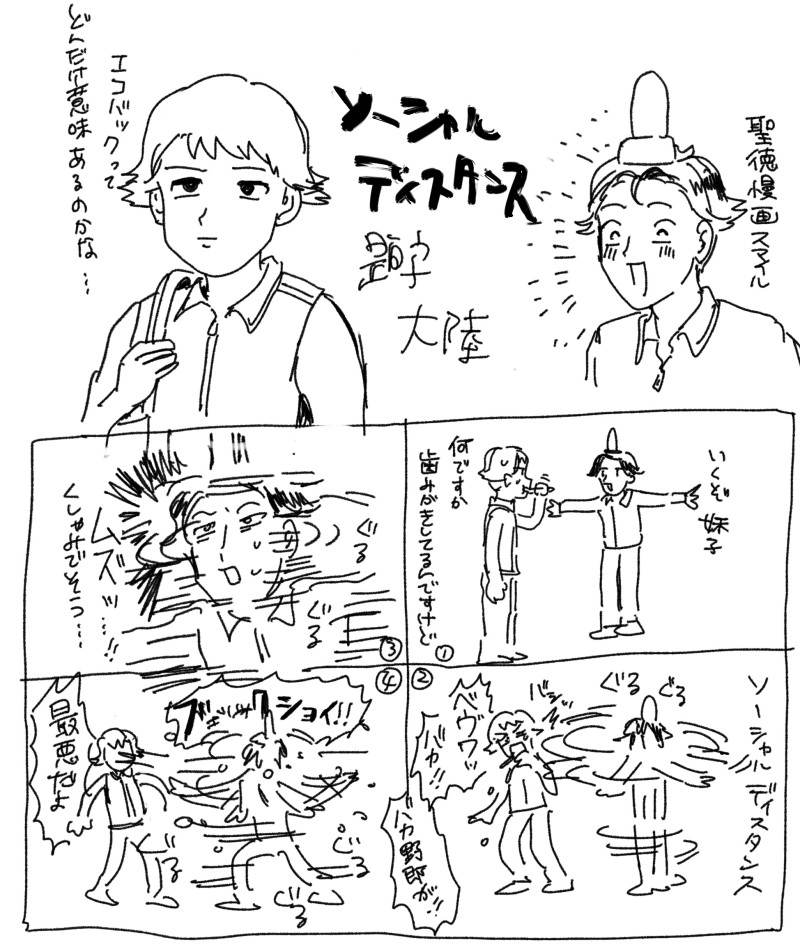 聖徳慢画スマイル
ソーシャル
ディスタンス
大陸
エコバックって
どんだけ意味あるのかな…
いくぞ 妹子
何ですか
歯みがきしてるんですけど
①
ソーシャルディスタンス
ぐる
ぐる
バシッ
ベヴワッ
バカ!!
バカ野郎が!!
②
ぐる
ぐる
ムズッ…!!
くしゃみでそう…
③
ブェックショイ!!
ぐる
ぐる
ぐる
最悪だよ
④